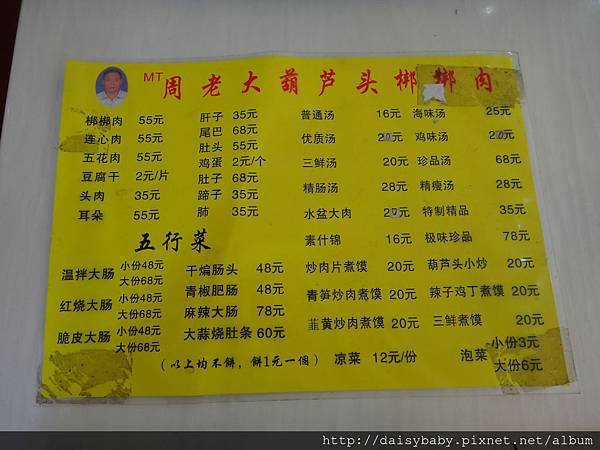 MT 周老大葫芦头梆梆肉
梆梆肉 55元
连心肉 55元
五花肉 55元
豆腐干 2元/片
头肉 35元
耳朵 55元
肝子 35元
尾巴 68元
肚头 55元
鸡蛋 2元/个
肚子 68元
蹄子 35元
肺 35元
普通汤 16元
优质汤 20元
三鲜汤 20元
精肠汤 28元
水盆大肉 20元
素什锦 16元
海味汤 25元
鸡味汤 20元
珍品汤 68元
精瘦汤 28元
特制精品 35元
极味珍品 78元
五行菜
温拌大肠 小份48元
大份68元
红烧大肠 小份48元
大份68元
脆皮大肠 小份48元
大份68元
干煸肠头 48元
青椒肥肠 48元
麻辣大肠 78元
大蒜烧肚条 60元
炒肉片煮馍 20元
青笋炒肉煮馍 20元
韮黄炒肉煮馍 20元
葫芦头小炒 20元
辣子鸡丁煮馍 20元
三鲜煮馍 20元
(以上均不餅，餅1元一个)
凉菜 12元/份
泡菜 小份3元
大份6元
http://daisybaby.pixnet.net/album